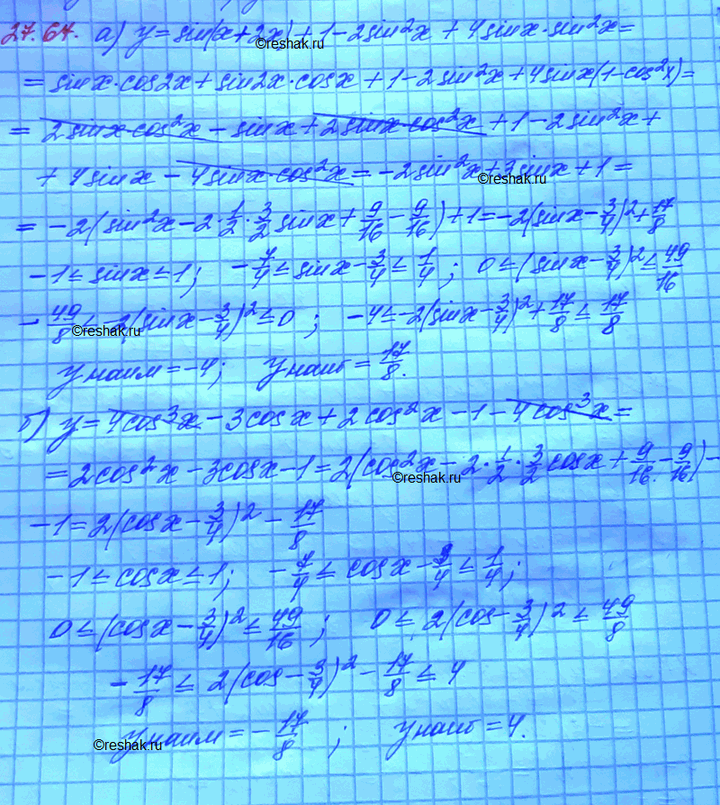 27.67. а) y = sin(x+2x) + 1 - 2sin²x + 4sinx·sin²x =
©reshak.ru
= sinx·cos2x + sin2x·cosx + 1 - 2sin²x + 4sinx(1-cos²x) =
= 2sinx·cos²x - sinx + 2sinx·cos²x + 1 - 2sin²x +
+ 4sinx - 4sinx·cos²x = -2sin²x + 3sinx + 1 =
©reshak.ru
= -2(sin²x - 2·1/2·3/2 sinx + 9/16 - 9/16) + 1 = -2(sinx - 3/4)² + 17/8
-1 ≤ sinx ≤ 1; -7/4 ≤ sinx - 3/4 ≤ 1/4; 0 ≤ (sinx - 3/4)² ≤ 49/16
-49/8 ≤ -2(sinx - 3/4)² ≤ 0; -4 ≤ -2(sinx - 3/4)² + 17/8 ≤ 17/8
©reshak.ru
y наим = -4; y наиб = 17/8.
б) y = 4cos³x - 3cosx + 2cos²x - 1 - 4cos³x =
= 2cos²x - 3cosx - 1 = 2(cos²x - 2·1/2·3/2 cosx + 9/16 - 9/16) -
©reshak.ru
- 1 = 2(cosx - 3/4)² - 17/8
-1 ≤ cosx ≤ 1; -7/4 ≤ cosx - 3/4 ≤ 1/4;
0 ≤ (cosx - 3/4)² ≤ 49/16; 0 ≤ 2(cos - 3/4)² ≤ 49/8
-17/8 ≤ 2(cos - 3/4)² - 17/8 ≤ 4
y наим = -17/8; y наиб = 4.
©reshak.ru